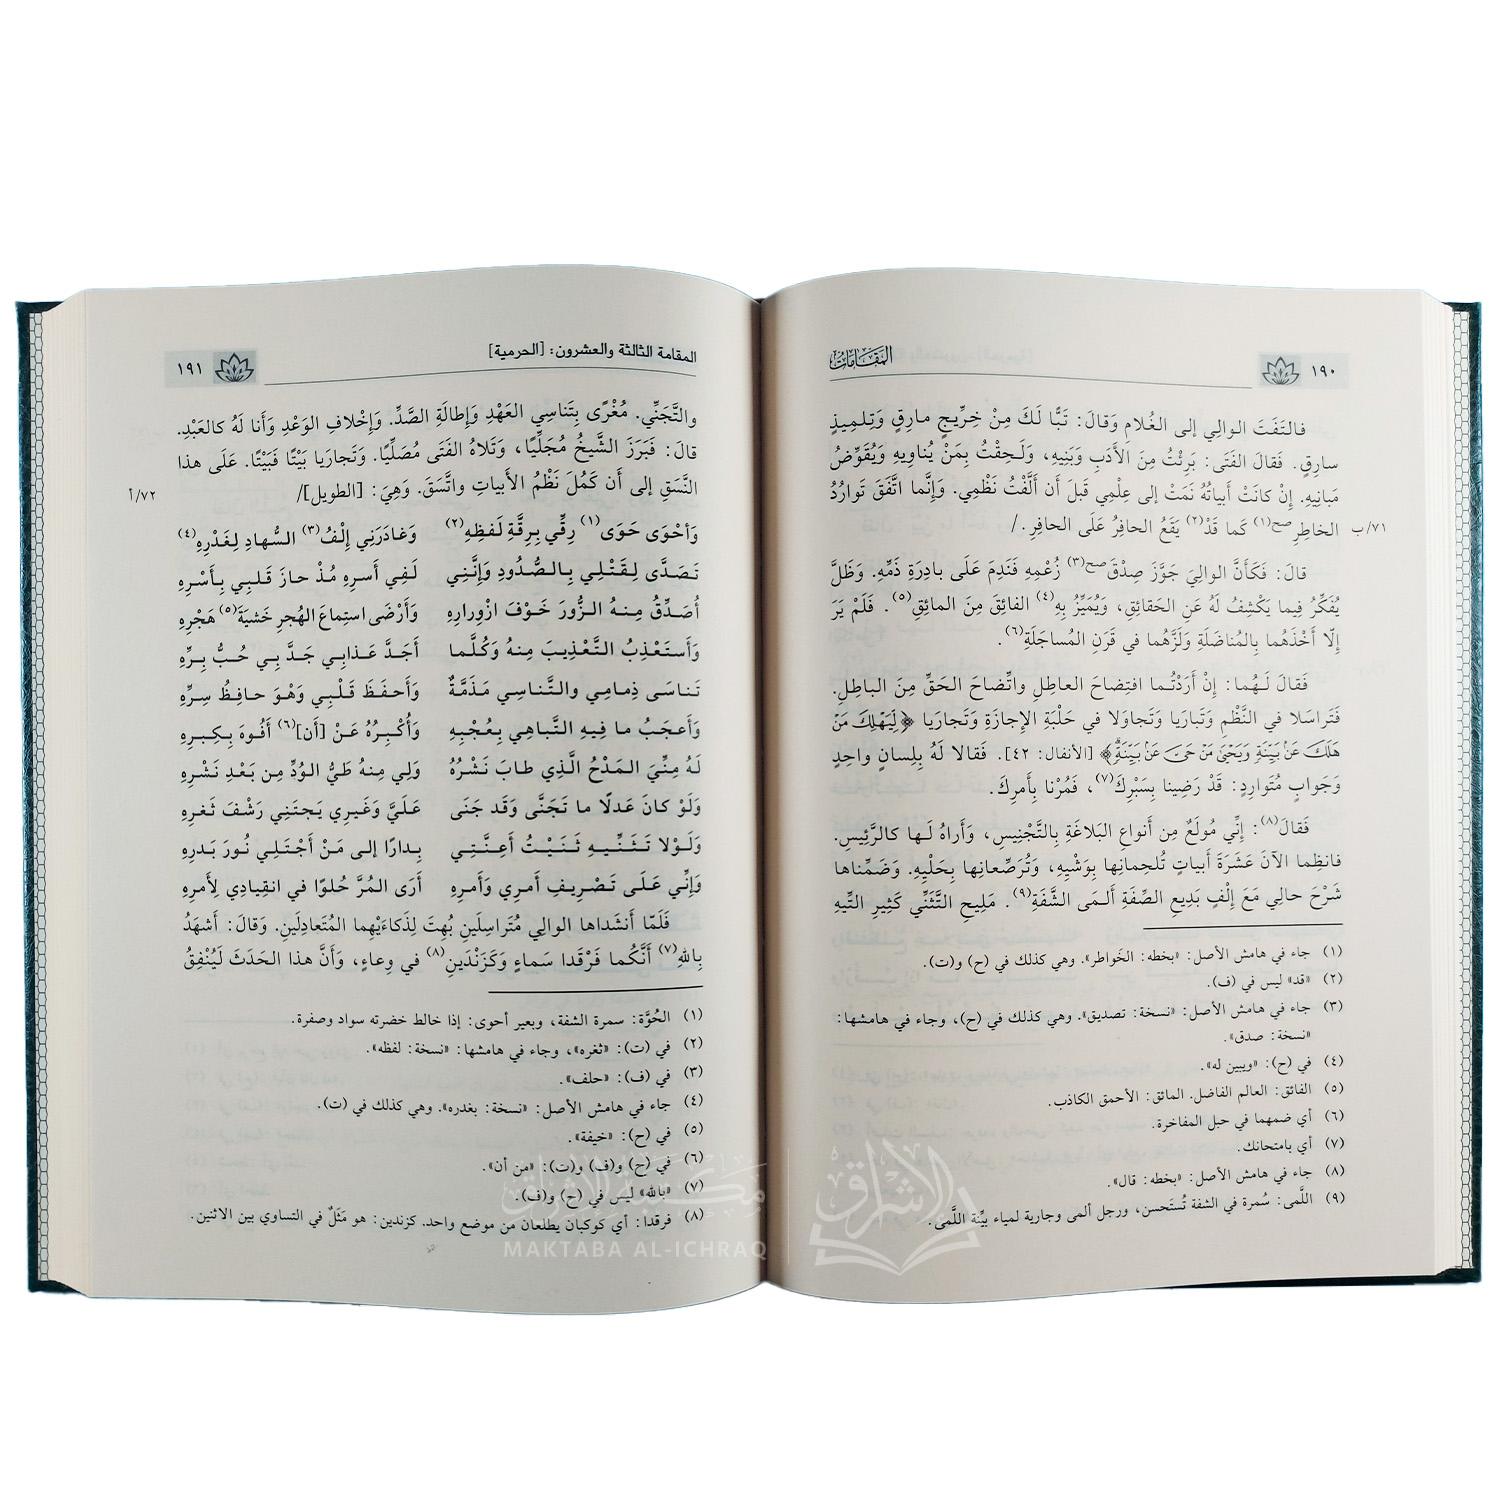 ١٩٠ المَقَامَاتُ
فالتَفَتَ الوالِي إلى الغُلامِ وَقالَ: تَبًّا لَكَ مِنْ خِرِّيجٍ مارِقٍ وَتِلمِيذٍ
سارِقٍ. فَقالَ الفَتَى: بَرِئْتُ مِنَ الأَدَبِ وَبَنِيهِ، وَلَحِقْتُ بِمَنْ يُناوِيهِ وَيُقَوِّضُ
مَبانِيهِ. إنْ كانَتْ أَبياتُهُ نَمَتْ إلى عِلْمِي قَبلَ أن أَلَّفْتُ نَظْمِي. وَإنَّما اتَّفَقَ تَوارُدُ
الخاطِرِ صح(١) كَما قَدْ(٢) يَقَعُ الحافِرُ عَلَى الحافِرِ. /
٧١/ب
قالَ: فَكَأَنَّ الوالِيَ جَوَّزَ صِدْقَ صح(٣) زُعْمِهِ فَنَدِمَ عَلَى بادِرَةِ ذَمِّهِ. وَظَلَّ
يُفَكِّرُ فِيما يَكْشِفُ لَهُ عَنِ الحَقائِقِ، وَيُمَيِّزُ بِهِ(٤) الفائِقَ مِنَ المائِقِ(٥). فَلَمْ يَرَ
إلّا أَخْذَهُما بِالمُناضَلَةِ وَلَزَّهُما في قَرَنِ المُساجَلَةِ(٦).
فَقالَ لَـهُما: إنْ أَرَدْتُـما افتِضاحَ العاطِلِ واتِّضاحَ الحَقِّ مِنَ الباطِلِ.
فَتَراسَلا في النَّظْمِ وَتَبارَيا وَتَجاوَلا في حَلْبَةِ الإجازَةِ وَتَجارَيا ﴿لِيَهْلِكَ مَنْ
هَلَكَ عَنْ بَيِّنَةٍ وَيَحْيَىٰ مَنْ حَيَّ عَنْ بَيِّنَةٍ﴾ [الأنفال: ٤٢]. فَقالا لَهُ بِلِسانٍ واحِدٍ
وَجَوابٍ مُتَوارِدٍ: قَدْ رَضِينا بِسَبْرِكَ(٧)، فَمُرْنا بِأَمرِكَ.
فَقالَ(٨): إنِّي مُولَعٌ مِن أَنواعِ البَلاغَةِ بِالتَّجْنِيسِ، وَأَراهُ لَـها كالرَّئِيسِ.
فانظِما الآنَ عَشَرَةَ أَبياتٍ تُلحِمانِها بِوَشْيِهِ، وَتُرَصِّعانِها بِحَلْيِهِ. وَضَمِّناها
شَرْحَ حالِي مَعَ إلْفٍ بَدِيعِ الصِّفَةِ أَلـمَى الشَّفَةِ(٩). مَلِيحِ التَّثَنِّي كَثِيرِ التِّيهِ
(١) جاء في هامش الأصل: «بخطه: الخَواطر». وهي كذلك في (ح) و(ت).
(٢) «قد» ليس في (ف).
(٣) جاء في هامش الأصل: «نسخة: تصديق». وهي كذلك في (ح)، وجاء في هامشها:
«نسخة: صدق».
(٤) في (ح): «ويبين له».
(٥) الفائق: العالم الفاضل. المائق: الأحمق الكاذب.
(٦) أي ضمهما في حبل المفاخرة.
(٧) أي بامتحانك.
(٨) جاء في هامش الأصل: «بخطه: قال».
(٩) اللَّمى: سُمرة في الشفة تُستَحسن، ورجل ألمى وجارية لمياء بيِّنة اللَّمى.
المقامة الثالثة والعشرون: [الحرمية] ١٩١
والتَّجَنِّي. مُغْرًى بِتَناسِي العَهْدِ وَإطالَةِ الصَّدِّ. وَإخْلافِ الوَعْدِ وَأَنا لَهُ كالعَبْدِ.
قالَ: فَبَرَزَ الشَّيخُ مُجَلِّيًا، وَتَلاهُ الفَتَى مُصَلِّيًا. وَتَجارَيا بَيْتًا فَبَيْتًا. عَلَى هذا
النَّسَقِ إلى أن كَمُلَ نَظْمُ الأَبياتِ واتَّسَقَ. وَهِيَ: [الطويل]/
٧٢/أ
وَأَحْوَى حَوَى(١) رِقِّي بِرِقَّةِ لَفظِهِ(٢) وَغادَرَنِي إلْفُ(٣) السُّهادِ لِغَدْرِهِ(٤)
تَصَدَّى لِقَتْلِي بِـالصُّدُودِ وَإنَّنِي لَفِي أَسرِهِ مُذْ حازَ قَلبِي بِأَسْرِهِ
أُصَدِّقُ مِنـهُ الـزُّورَ خَوْفَ ازْوِرارِهِ وَأَرْضَى استِماعَ الهُجرِ خَشيَةَ(٥) هَجْرِهِ
وَأَستَعْذِبُ التَّعْذِيبَ مِنهُ وَكُلَّما أَجَدَّ عَذابِي جَدَّ بِي حُبُّ بِرِّهِ
تَناسَى ذِمامِي والتَّناسِي مَذَمَّةٌ وَأَحفَظَ قَلْبِي وَهْوَ حافِظُ سِرِّهِ
وَأَعجَبُ ما فِيهِ التَّباهِي بِعُجْبِهِ وَأُكْبِرُهُ عَنْ [أن](٦) أَفُوهَ بِكِبرِهِ
لَهُ مِنِّيَ المَدْحُ الَّذِي طابَ نَشْرُهُ وَلِي مِنهُ طَيُّ الوُدِّ مِن بَعْدِ نَشْرِهِ
وَلَوْ كانَ عَدلًا ما تَجَنَّى وَقد جَنَى عَلَيَّ وَغَيرِي يَجتَنِي رَشْفَ ثَغرِهِ
وَلَـوْلا تَـثَنِّـيهِ ثَنَيْتُ أَعِنَّـتِي بِدارًا إلى مَنْ أَجْتَلِي نُورَ بَدرِهِ
وَإنِّي عَلَى تَصْرِيفِ أَمرِي وَأَمرِهِ أَرَى المُرَّ حُلوًا في انقِيادِي لِأَمرِهِ
فَلَمّا أَنشَداها الوالِي مُتَراسِلَينِ بُهِتَ لِذَكاءَيْهِما المُتَعادِلَينِ. وَقالَ: أَشهَدُ
بِاللهِ(٧) أَنَّكُما فَرْقَدا سَماءٍ وَكَزَنْدَينِ(٨) في وِعاءٍ، وَأَنَّ هذا الحَدَثَ لَيُنْفِقُ
(١) الحُوَّة: سمرة الشفة، وبعير أحوى: إذا خالط خضرته سواد وصفرة.
(٢) في (ت): «ثغره»، وجاء في هامشها: «نسخة: لفظه».
(٣) في (ف): «حلف».
(٤) جاء في هامش الأصل: «نسخة: بغدره». وهي كذلك في (ت).
(٥) في (ح): «خيفة».
(٦) في (ح) و(ف) و(ت): «من أن».
(٧) «بالله» ليس في (ح) و(ف).
(٨) فرقدا: أي كوكبان يطلعان من موضع واحد. كزندين: هو مَثَلٌ في التساوي بين الاثنين.
مكتبة الإشراق
MAKTABA AL-ICHRAQ
الإشراق